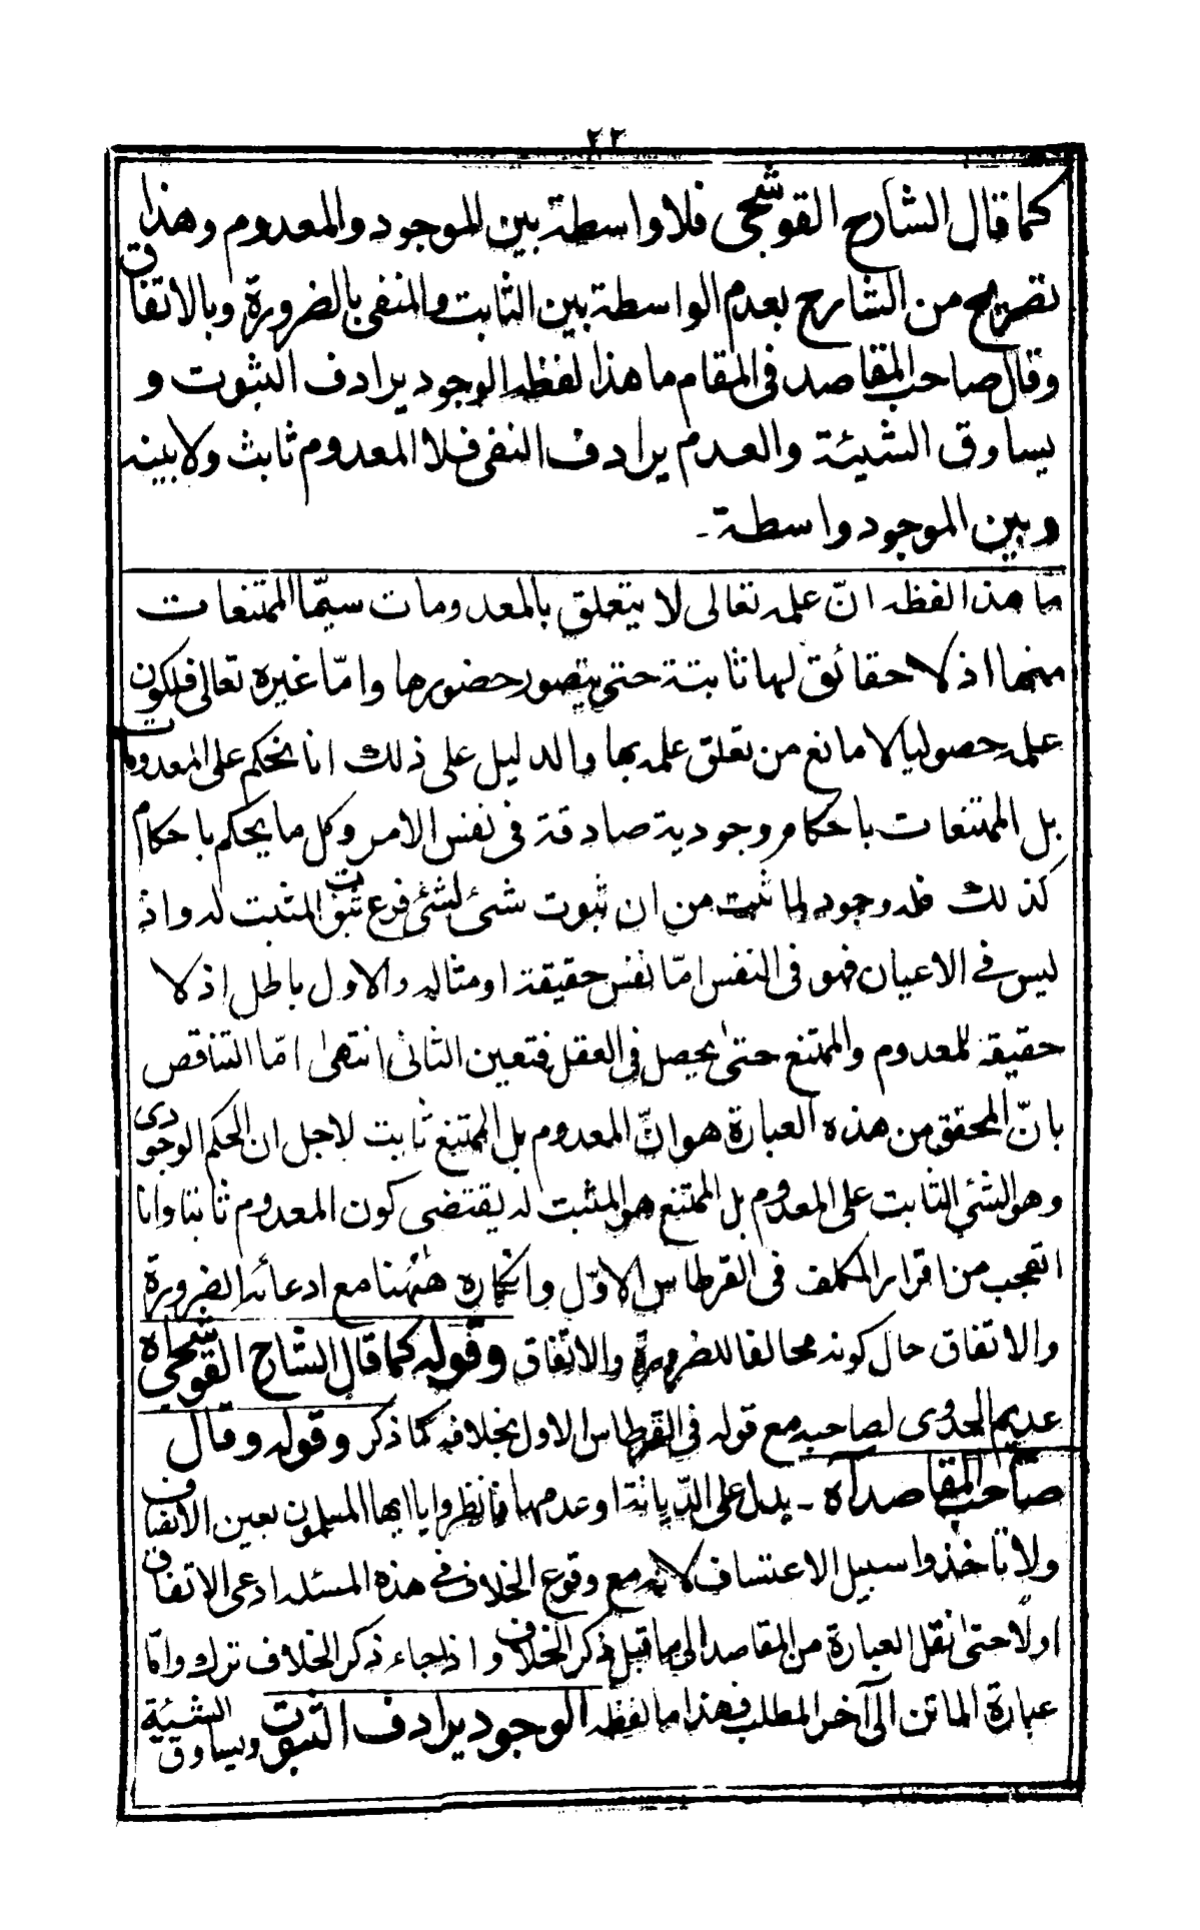 ٢٢
كما قال الشارح القوشجى فلا واسطة بين الموجود والمعدوم وهذا
تصريح من الشارح بعدم الواسطة بين الثابت والمنفى بالضرورة وبالاتفاق
وقال صاحب المقاصد فى المقام ما هذا لفظه الوجود يرادف الثبوت و
يساوق الشيئة والعدم يرادف النفى فلا المعدوم ثابت ولا بينه
وبين الموجود واسطة -
ما هذا لفظه انّ علمه تعالى لا يتعلق بالمعدومات سيمّا الممتنعات
منها اذ لا حقائق لها ثابتة حتى يتصور حضورها وامّا غيره تعالى فلكون
علمه حصوليا لا مانع من تعلق علمه بها والدليل على ذلك انا نحكم على المعدومات
بل الممتنعات باحكام وجودية صادقة فى نفس الامر وكل ما يحكم باحكام
كذلك فله وجود لما ثبت من ان ثبوت شئ لشئ فرع ثبوت المثبت له واذ
ليس فى الاعيان فهو فى النفس امّا نفس حقيقة او مثاله والاول باطل اذ لا
حقيقة للمعدوم والممتنع حتىٰ يحصل فى العقل فتعين الثانى انتهىٰ امّا التناقص
بانّ المحقق من هذه العبارة هو انّ المعدوم بل الممتنع ثابت لاجل ان الحكم الوجودى
وهو الشئ الثابت على المعدوم بل الممتنع هو المثبت له يقتضى كون المعدوم ثابتا وانا
اتعجب من اقرار المكلف فى القرطاس الاوّل وانكاره هٰهنا مع ادعائه الضرورة
والاتفاق حال كونه مخالفا للضرورة والاتفاق وقوله كما قال الشارح القوشجى اه
عديم الجدوى لصاحبه مع قوله فى القرطاس الاول بخلافه كما ذكر وقوله وقال
صاحب المقاصد اه - يدل على الدّيانة او عدمها فانظروا يا ايها المسلمون بعين الانصاف
ولا تاخذوا سبيل الاعتساف لانه مع وقوع الخلاف فى هذه المسئله ادعى الاتفاق
اولًا حتىٰ نقل العبارة من المقاصد الى ما قبل ذكر الخلاف واذا جاء ذكر الخلاف ترك وامّا
عبارة الماتن الى آخر المطلب فهذا ما لفظه الوجود يرادف الثبوت ويساوق الشيئة